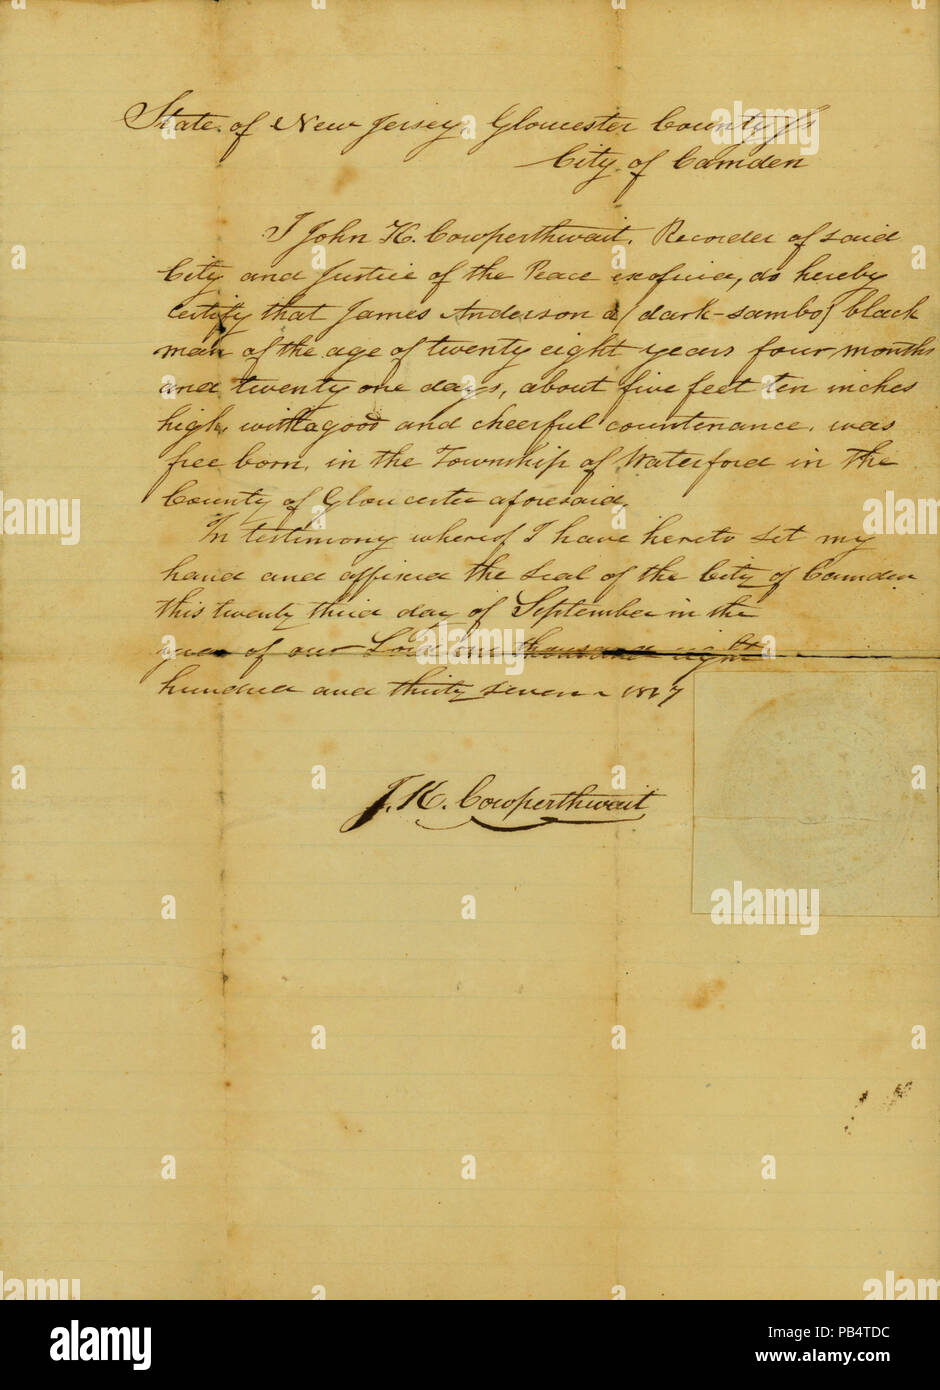 State of New Jersey, Gloucester County ss
City of Camden
I John K. Cowperthwait, Recorder of said
City and Justice of the Peace exoficia, do hereby
certify that James Anderson a (dark-sambo) black
man of the age of twenty eight years four months
and twenty one days, about five feet ten inches
high, with a good and cheerful countenance, was
free born, in the Township of Waterford in the
County of Gloucester aforesaid.
In testimony whereof I have hereto set my
hand and affixed the seal of the City of Camden
this twenty third day of September in the
year of our Lord one thousand eight
hundred and thirty seven 1837
J. K. Cowperthwait
alamy
Image ID: PB4TDC
www.alamy.com